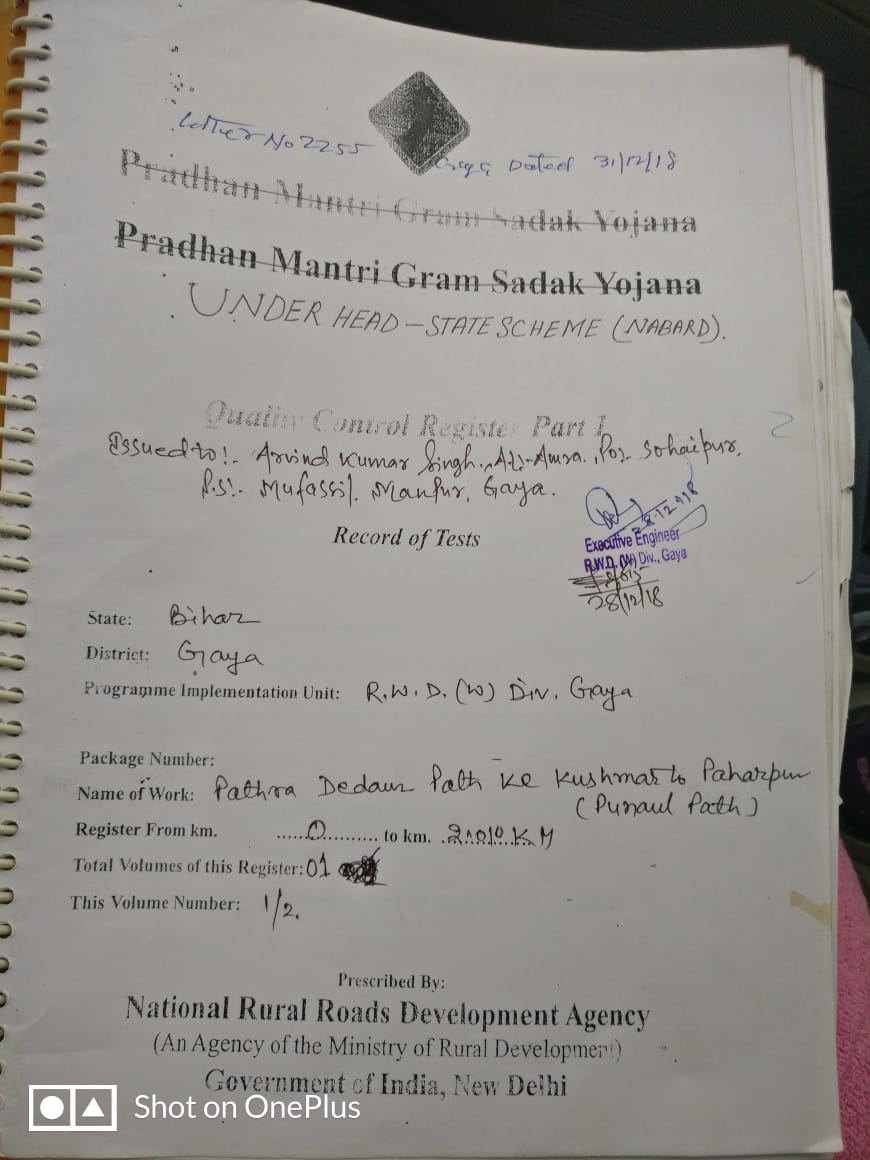 Letter No 2255
Gaya Dated 31/12/18
Pradhan Mantri Gram Sadak Yojana
Pradhan Mantri Gram Sadak Yojana
UNDER HEAD - STATE SCHEME (NABARD).
Quality Control Register Part I
Issued to:- Arvind Kumar Singh, At:- Amra, Po:- Sohaipur,
P.S:- Mufassil, Manpur, Gaya.
28.12.18
Record of Tests
Executive Engineer
R.W.D. (W) Div., Gaya
28/12/18
State: Bihar
District: Gaya
Programme Implementation Unit: R.W.D. (W) Div. Gaya
Package Number:
Name of Work: Pathra Dedaur Path ke Kushmar to Paharpur
(Punaul Path)
Register From km. ......0.......... to km. .2.010.KM
Total Volumes of this Register: 01
This Volume Number: 1/2.
Prescribed By:
National Rural Roads Development Agency
(An Agency of the Ministry of Rural Development)
Government of India, New Delhi
Shot on OnePlus